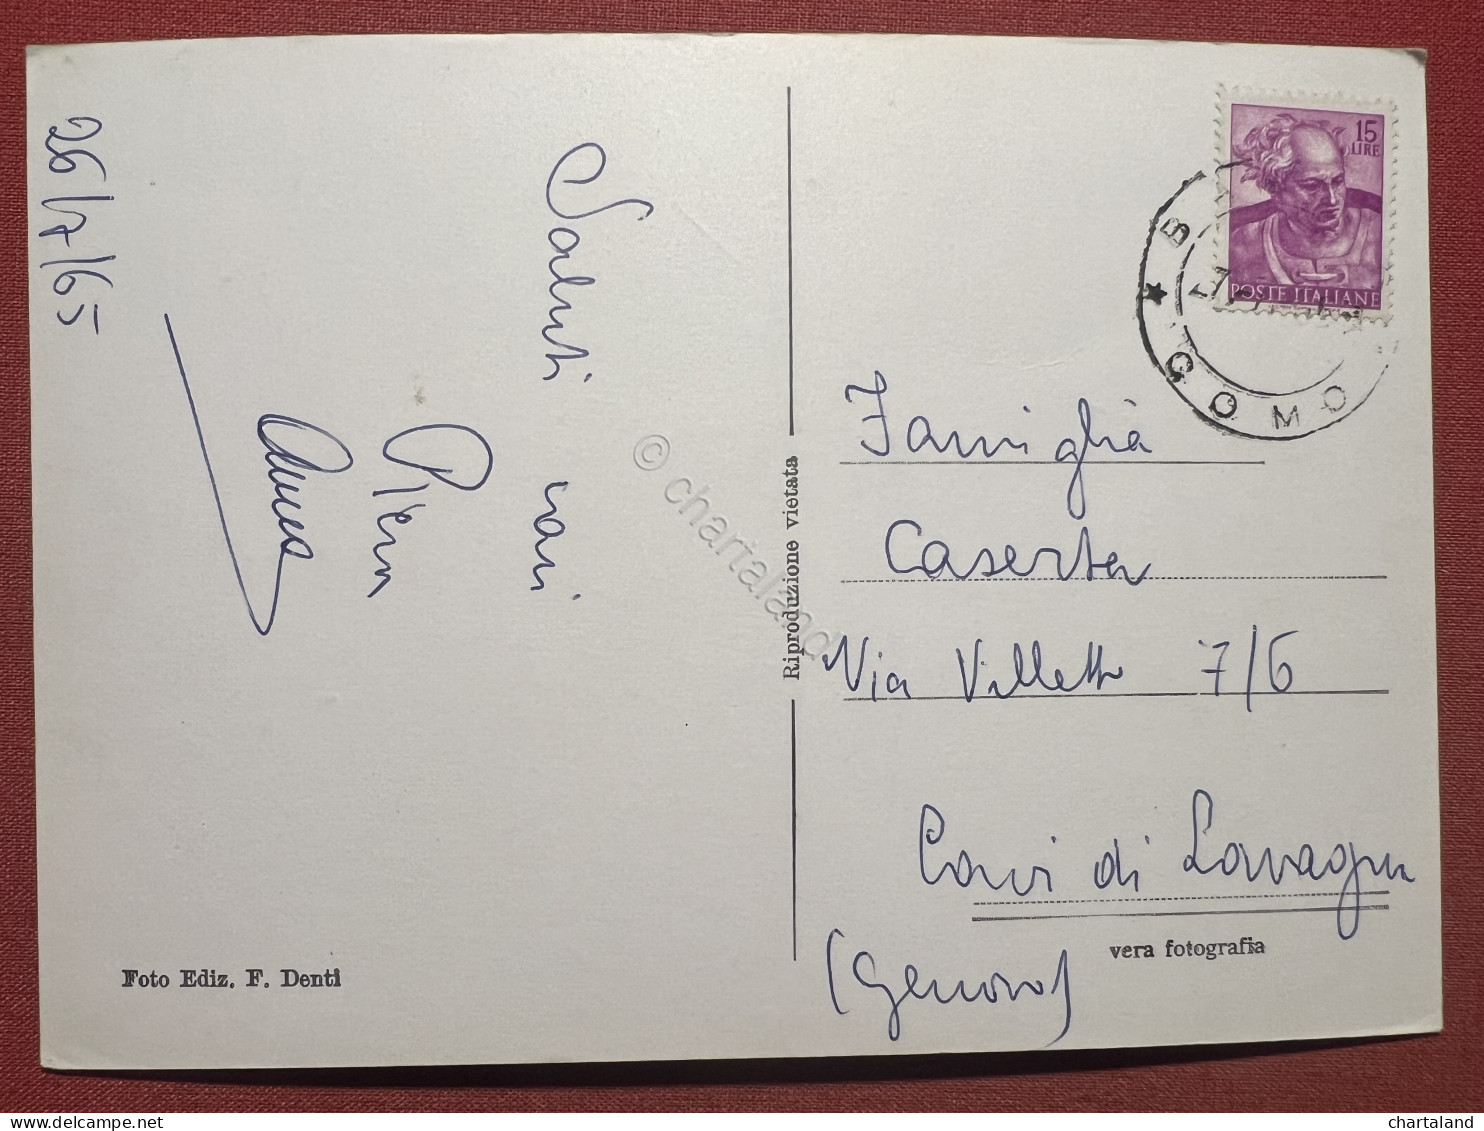 26/7/65
Saluti cari
Piera
Anna
Foto Ediz. F. Denti
Riproduzione vietata
15
LIRE
POSTE ITALIANE
COMO
Famiglia
Caserta
Via Villette 7/6
Cavi di Lavagna
(Genova)
vera fotografia
© chartaland
chartaland